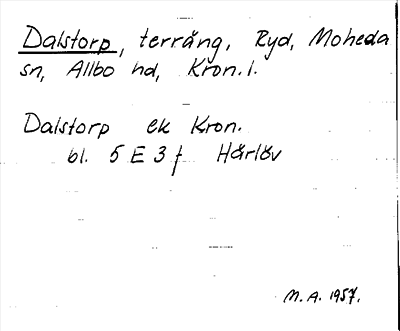 Dalstorp, terräng, Ryd, Moheda
sn, Allbo hd, Kron. l.
Dalstorp ek Kron.
bl. 5 E 3 f Härlöv
M. A. 1957.